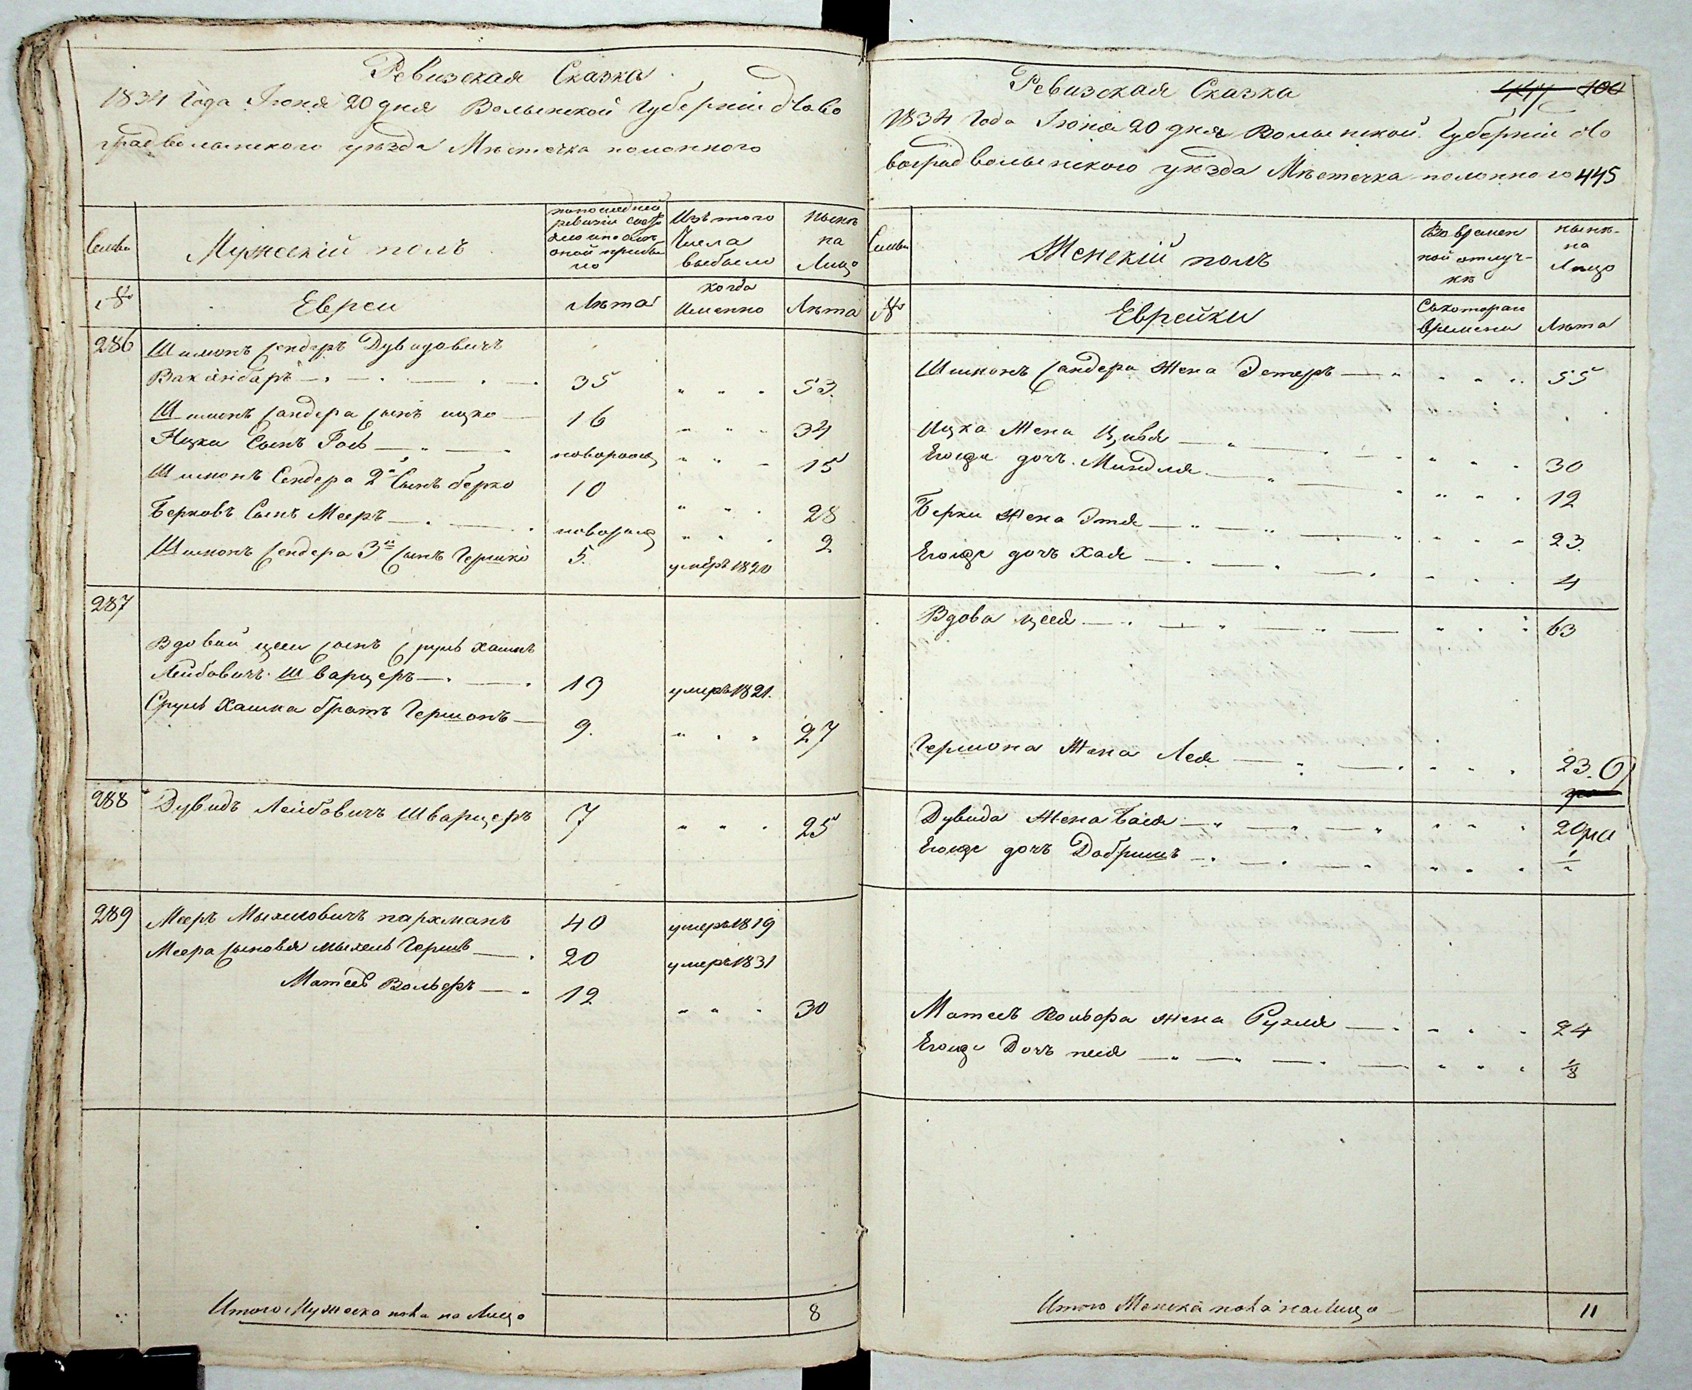 Ревизская Сказка
1834 года Іюня 20 дня Волынской Губерніи Ново
градволынского уѣзда Мѣстечка полонного
Семьи
Мужескій полъ
по последней
ревизіи состо
яло и после
оной прибы
ло
Изъ того
Числа
выбыло
нынѣ
на
Лицо
№
Евреи
Лѣта
когда
именно
Лѣта
286
Шимонъ Сендеръ Дувидовичъ
35 " " " 53.
Шимонъ Сандера Сынъ ицко 16 " " " 34
Ицка Сынъ новорож " " " 15
Шимонъ Сендера 2й Сынъ берко 10 " " " 28
Берковъ Сынъ Мееръ новорож " " " 2
Шимонъ Сендера 3й Сынъ Гершко 5. умеръ 1820
287
Вдовы цеи сынъ Сруль Хаимъ
Лейбовичъ Шварцеръ 19 умеръ 1821.
Сруль Хаима братъ Гершонъ 9. " " " 27
288 Дувидъ Лейбовичъ Шварцеръ 7 " " " 25
289 Мееръ Мыхелевичъ пархманъ 40 умеръ 1819
Меера Сыновья мыхель Гершъ 20 умеръ 1831
Матес Вольфъ 12 " " " 30
Итого Мужеска пола на Лицо 8
Ревизская Сказка
1834 года Іюня 20 дня Волынской Губерніи Но
воградволынского уѣзда Мѣстечка полонного 445
Семьи
Женскій полъ
Во времен
ной отлуч-
кѣ
нынѣ
на
Лицо
№
Еврейки
Съкотораго
времени
Лѣта
Шимонъ Сандера Жена Эстеръ " " " 55
Ицка Жена Цивья " " " 30
Егожъ дочъ Миндля " " " 12
Берки Жена Этя " " " 23.
Егожъ дочъ Хая " " " 4
Вдова цея " " " 63
Гершона Жена Лея " " " 23.
Дувида Жена Бася " " " 20
Егожъ дочъ Добришъ " " "
Матесъ Вольфа жена Рухля " " " 24
Егожъ Дочъ пея " " " 1/8
Итого Женска пола на Лицо 11